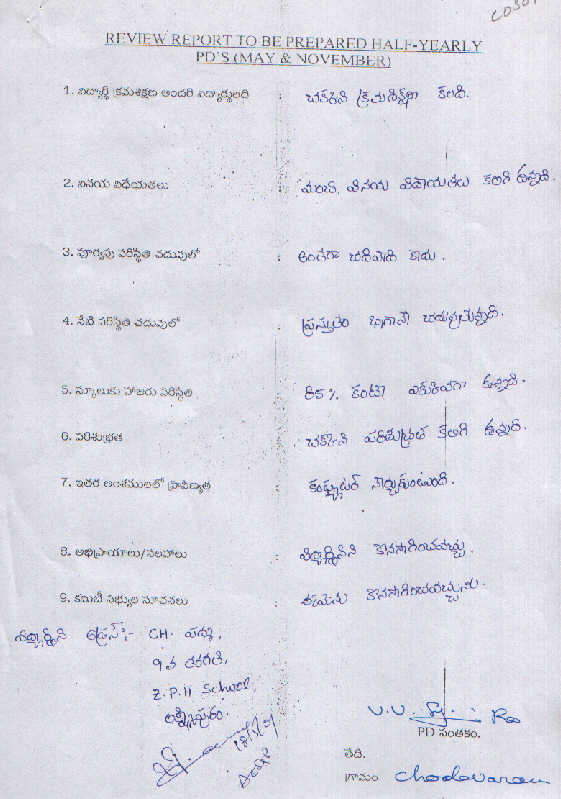 REVIEW REPORT TO BE PREPARED HALF-YEARLY
PD'S (MAY & NOVEMBER)
1. విద్యార్థి క్రమశిక్షణ అందరి విద్యార్థులది : చక్కని క్రమశిక్షణ కలది.
2. వినయ విధేయతలు : వినయ విధేయతలు కలిగి ఉన్నది.
3. పూర్వపు పరిస్థితి చదువులో : అంతగా చదివేది కాదు.
4. నేటి పరిస్థితి చదువులో : ప్రస్తుతం బాగానే చదువుతున్నది.
5. స్కూలుకు హాజరు పరిస్థితి : % కంటే ఎక్కువగా ఉన్నది.
6. పరిశుభ్రత : చక్కని పరిశుభ్రత కలిగి ఉన్నది.
7. ఇతర అంశములలో ప్రావీణ్యత : కంప్యూటర్ నేర్చుకుంటుంది.
8. అభిప్రాయాలు/సలహాలు : విద్యార్థినిని కొనసాగించవచ్చు.
9. కమిటీ సభ్యుల సూచనలు : ఈమెను కొనసాగించవచ్చును.
విద్యార్థిని అడ్రస్ :- CH.
9వ తరగతి,
Z.P.H School,
లక్ష్మీపురం.
V.V. Rao
PD సంతకం.
తేది.
గ్రామం Chodavaram